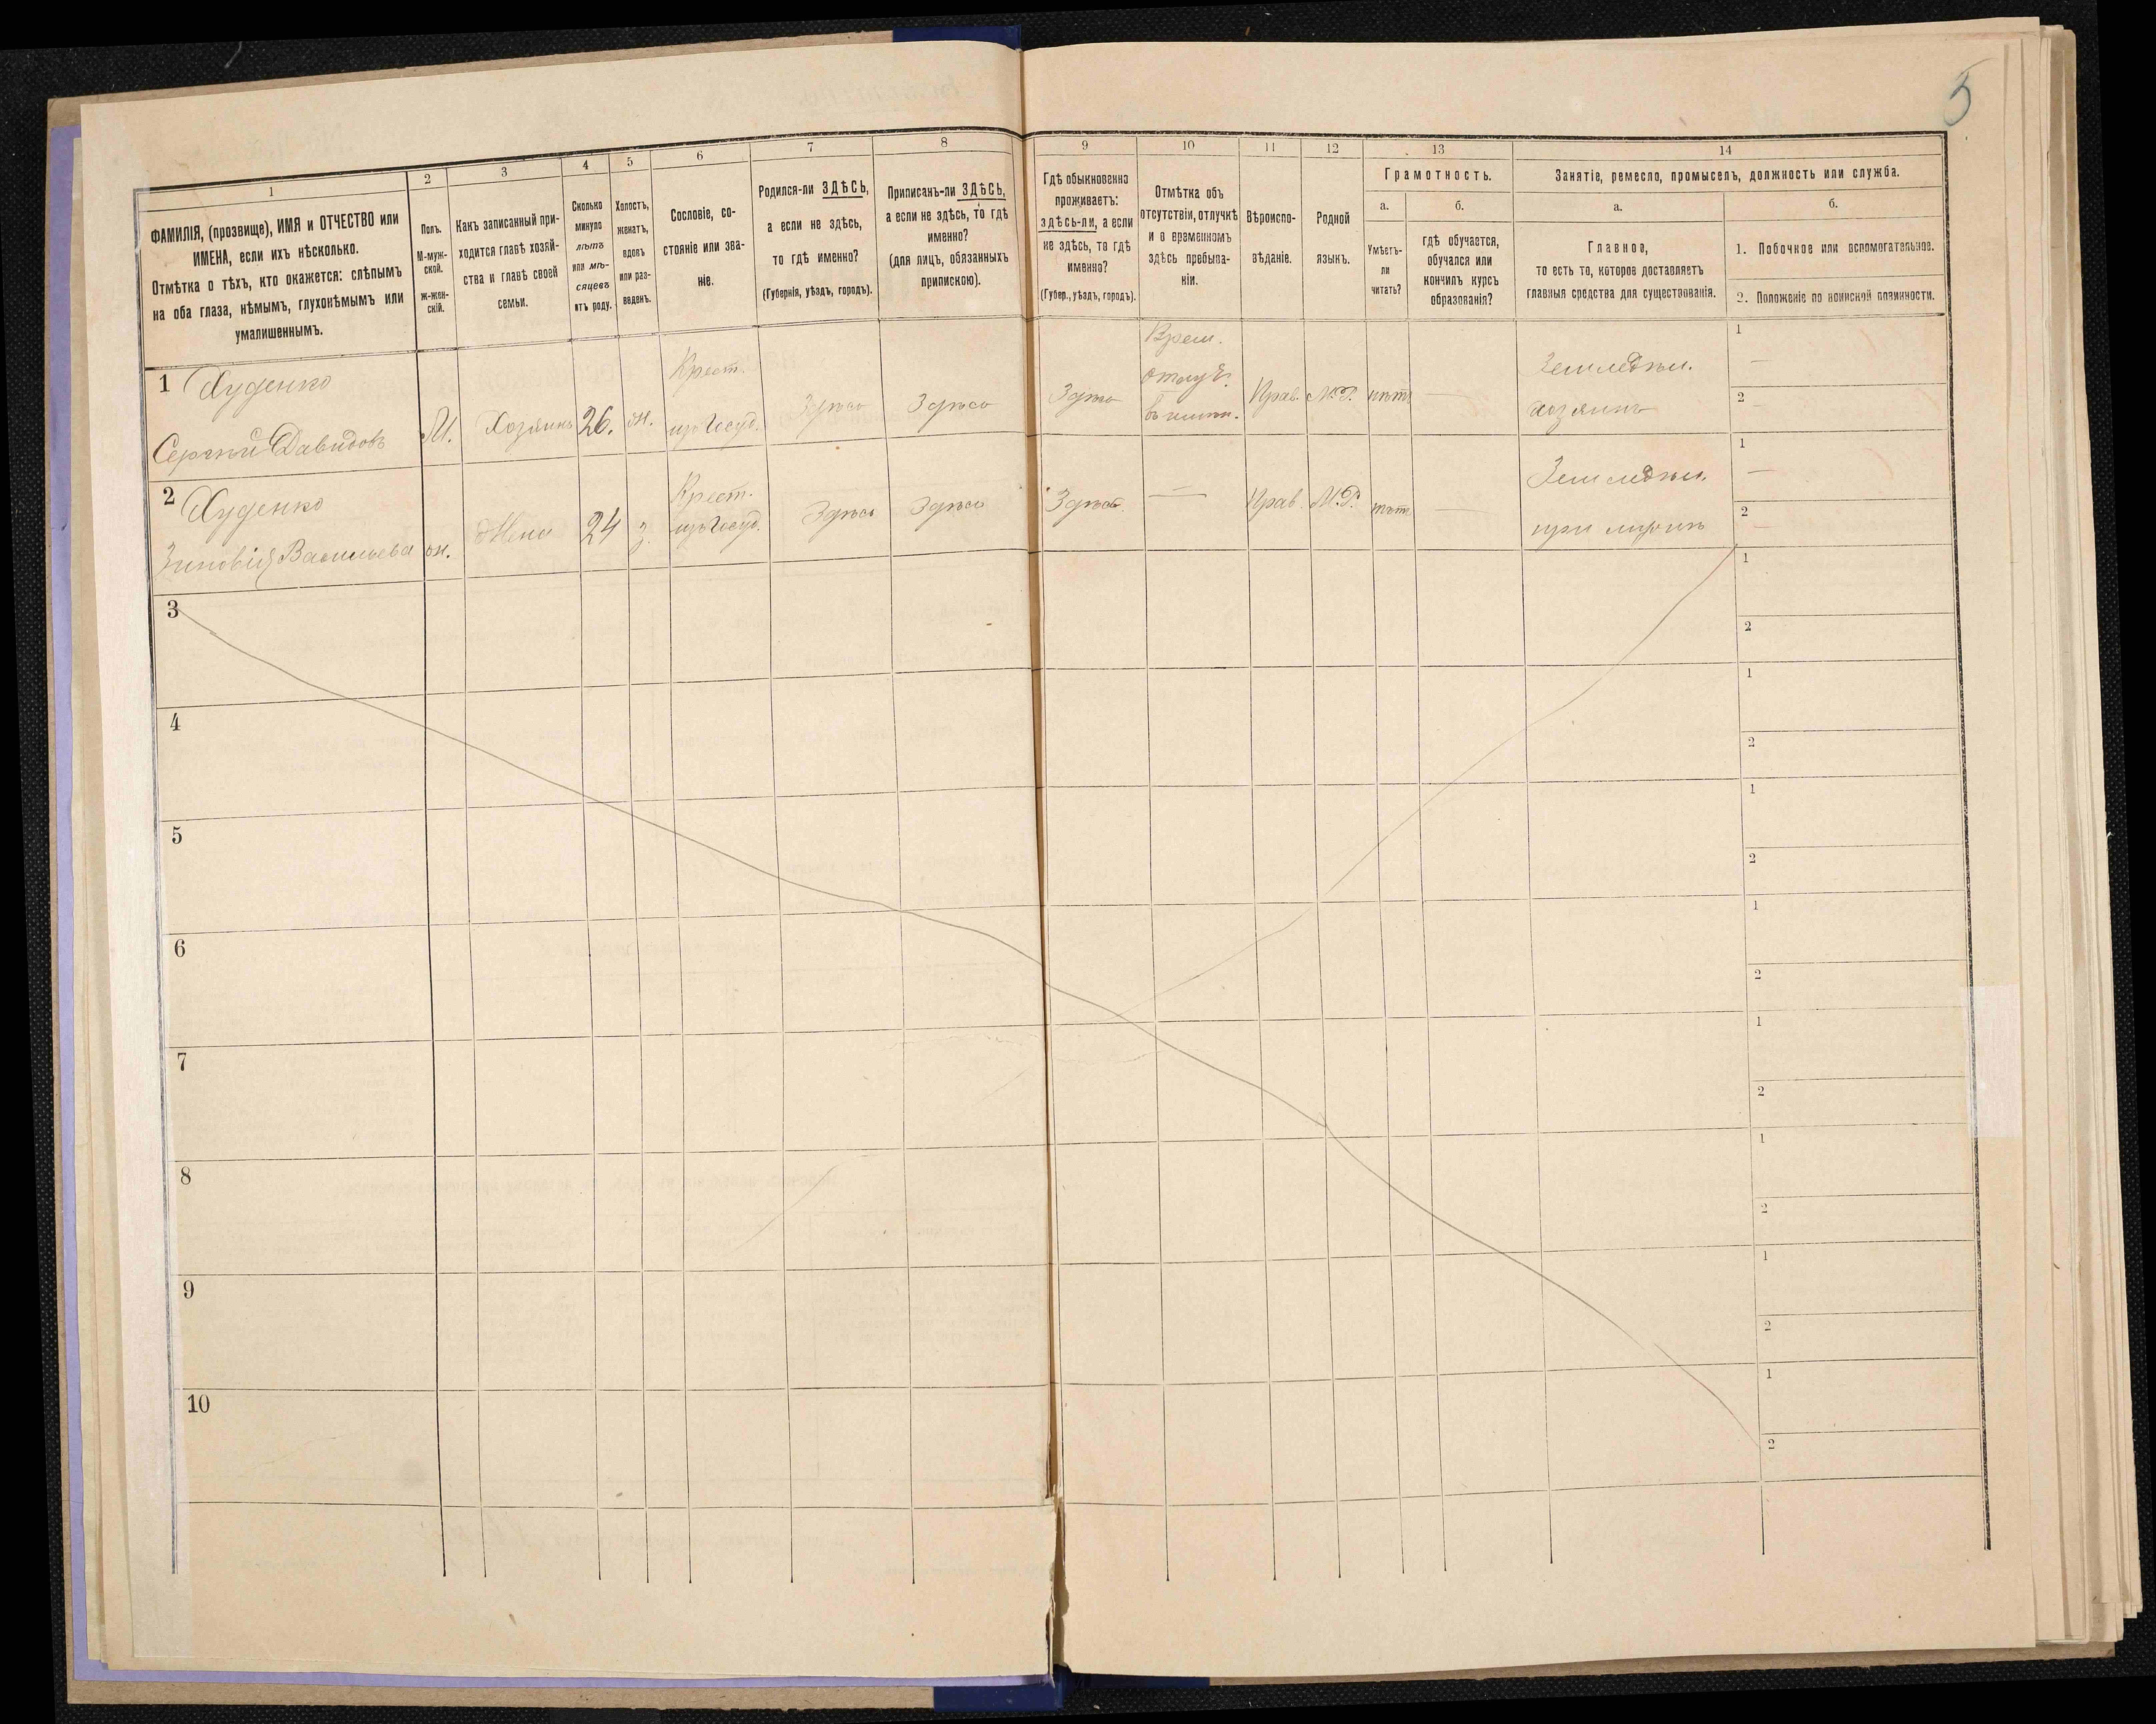 5
1
2
3
4
5
6
7
8
9
10
11
12
13
14
ФАМИЛІЯ, (прозвище), ИМЯ и ОТЧЕСТВО или
ИМЕНА, если ихъ нѣсколько.
Отмѣтка о тѣхъ, кто окажется: слѣпымъ
на оба глаза, нѣмымъ, глухонѣмымъ или
умалишеннымъ.
Полъ.
М-муж-
ской.
ж-жен-
скій.
Какъ записанный при-
ходится главѣ хозяй-
ства и главѣ своей
семьи.
Сколько
минуло
лѣтъ
или мѣ-
сяцевъ
отъ роду.
Холостъ,
женатъ,
вдовъ
или раз-
веденъ.
Сословіе, со-
стояніе или зва-
ніе.
Родился-ли ЗДѢСЬ,
а если не здѣсь,
то гдѣ именно?
(Губернія, уѣздъ, городъ).
Приписанъ-ли ЗДѢСЬ,
а если не здѣсь, то гдѣ
именно?
(для лицъ, обязанныхъ
припискою).
Гдѣ обыкновенно
проживаетъ:
здѣсь-ли, а если
не здѣсь, то гдѣ
именно?
(Губер., уѣздъ, городъ).
Отмѣтка объ
отсутствіи, отлучкѣ
и о временномъ
здѣсь пребыва-
ніи.
Вѣроиспо-
вѣданіе.
Родной
языкъ.
Грамотность.
а.
Умѣетъ-
ли
читать?
б.
гдѣ обучается,
обучался или
кончилъ курсъ
образованія?
Занятіе, ремесло, промыселъ, должность или служба.
а.
Главное,
то есть то, которое доставляетъ
главныя средства для существованія.
б.
1. Побочное или вспомогательное.
2. Положеніе по воинской повинности.
1 Худенко
Сергѣй Давидовъ
М.
Хозяинъ
26.
ж.
Крест.
изъ Госуд.
Здѣсь
Здѣсь
Здѣсь
Врем.
Прав.
М.Р.
нѣтъ
—
Земледѣл.
хозяинъ
1 —
2 —
2 Худенко
Зиновія Васильева
ж.
Жена
24
з.
Крест.
изъ Госуд.
Здѣсь
Здѣсь
Здѣсь
—
Прав.
М.Р.
нѣтъ
—
Земледѣл.
при мужѣ
1 —
2 —
3
1
2
4
1
2
5
1
2
6
1
2
7
1
2
8
1
2
9
1
2
10
1
2